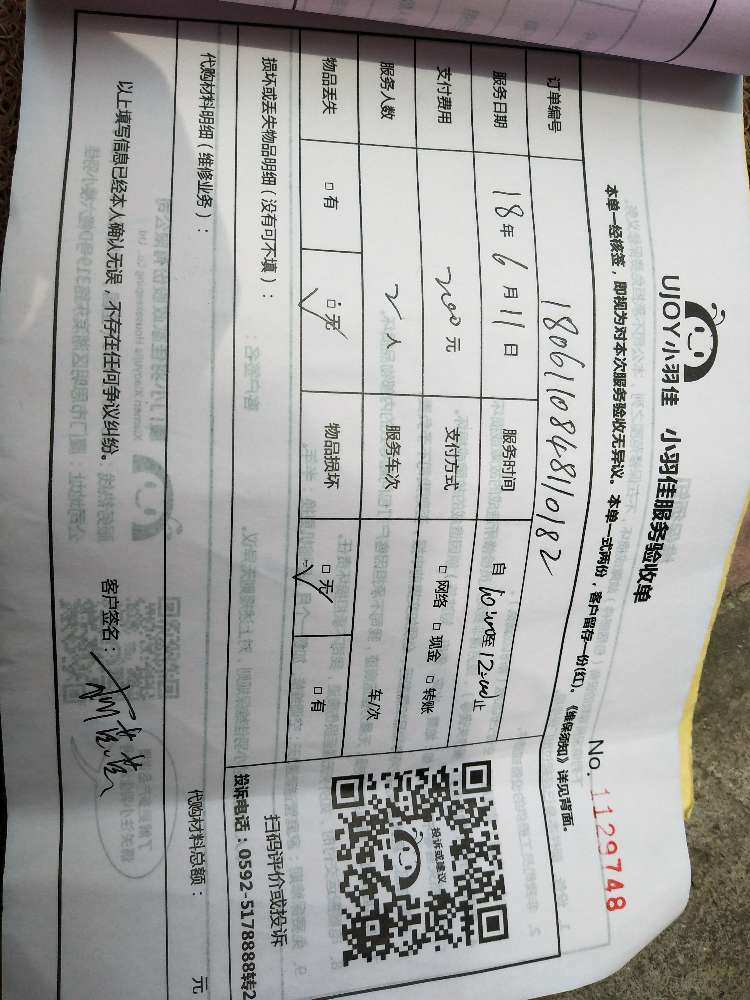 UJOY小羽佳 小羽佳服务验收单
No. 1129748
本单一经核签，即视为对本次服务验收无异议。本单一式两份，客户留存一份(红)。《维保须知》详见背面。
订单编号 1806110848110182
服务日期 18年6月11日 服务时间 自10:00至12:00止
支付费用 200元 支付方式 □网络 □现金 □转账
服务人数 2人 服务车次 车/次
物品丢失 □有 □无√ 物品损坏 □无√ □有
损坏或丢失物品明细（没有可不填）：
投诉或建议
扫码评价或投诉
投诉电话：0592-5178888转2
代购材料明细（维修业务）： 代购材料总额： 元
以上填写信息已经本人确认无误，不存在任何争议纠纷。 客户签名：